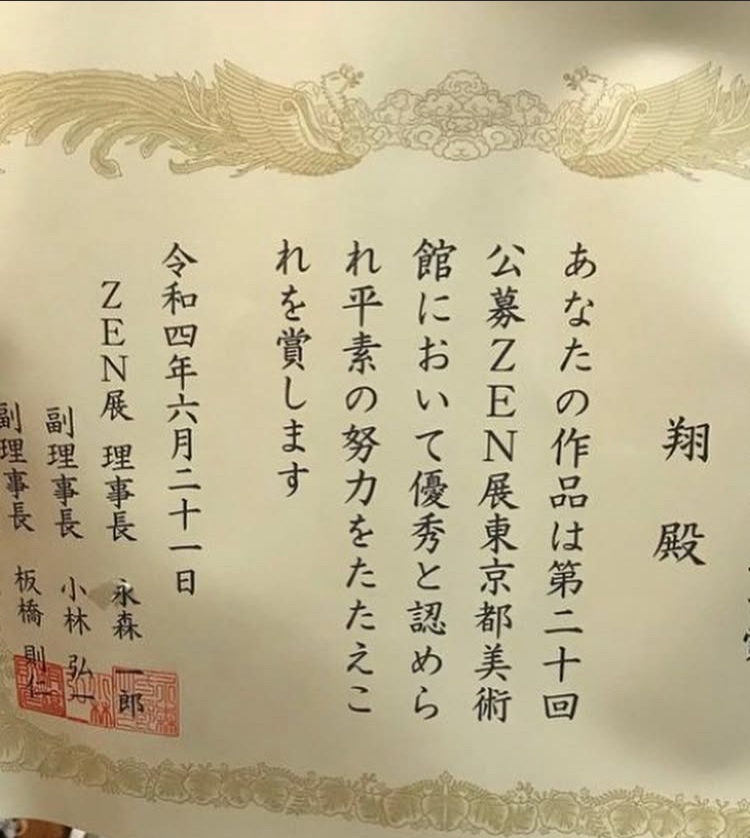 翔 殿
あなたの作品は第二十回
公募ZEN展東京都美術
館において優秀と認めら
れ平素の努力をたたえこ
れを賞します
令和四年六月二十一日
ZEN展 理事長 永森 一郎
副理事長 小林 弘一
副理事長 板橋 則仁